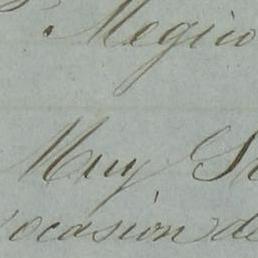 Megico
Muy S
ocasion de